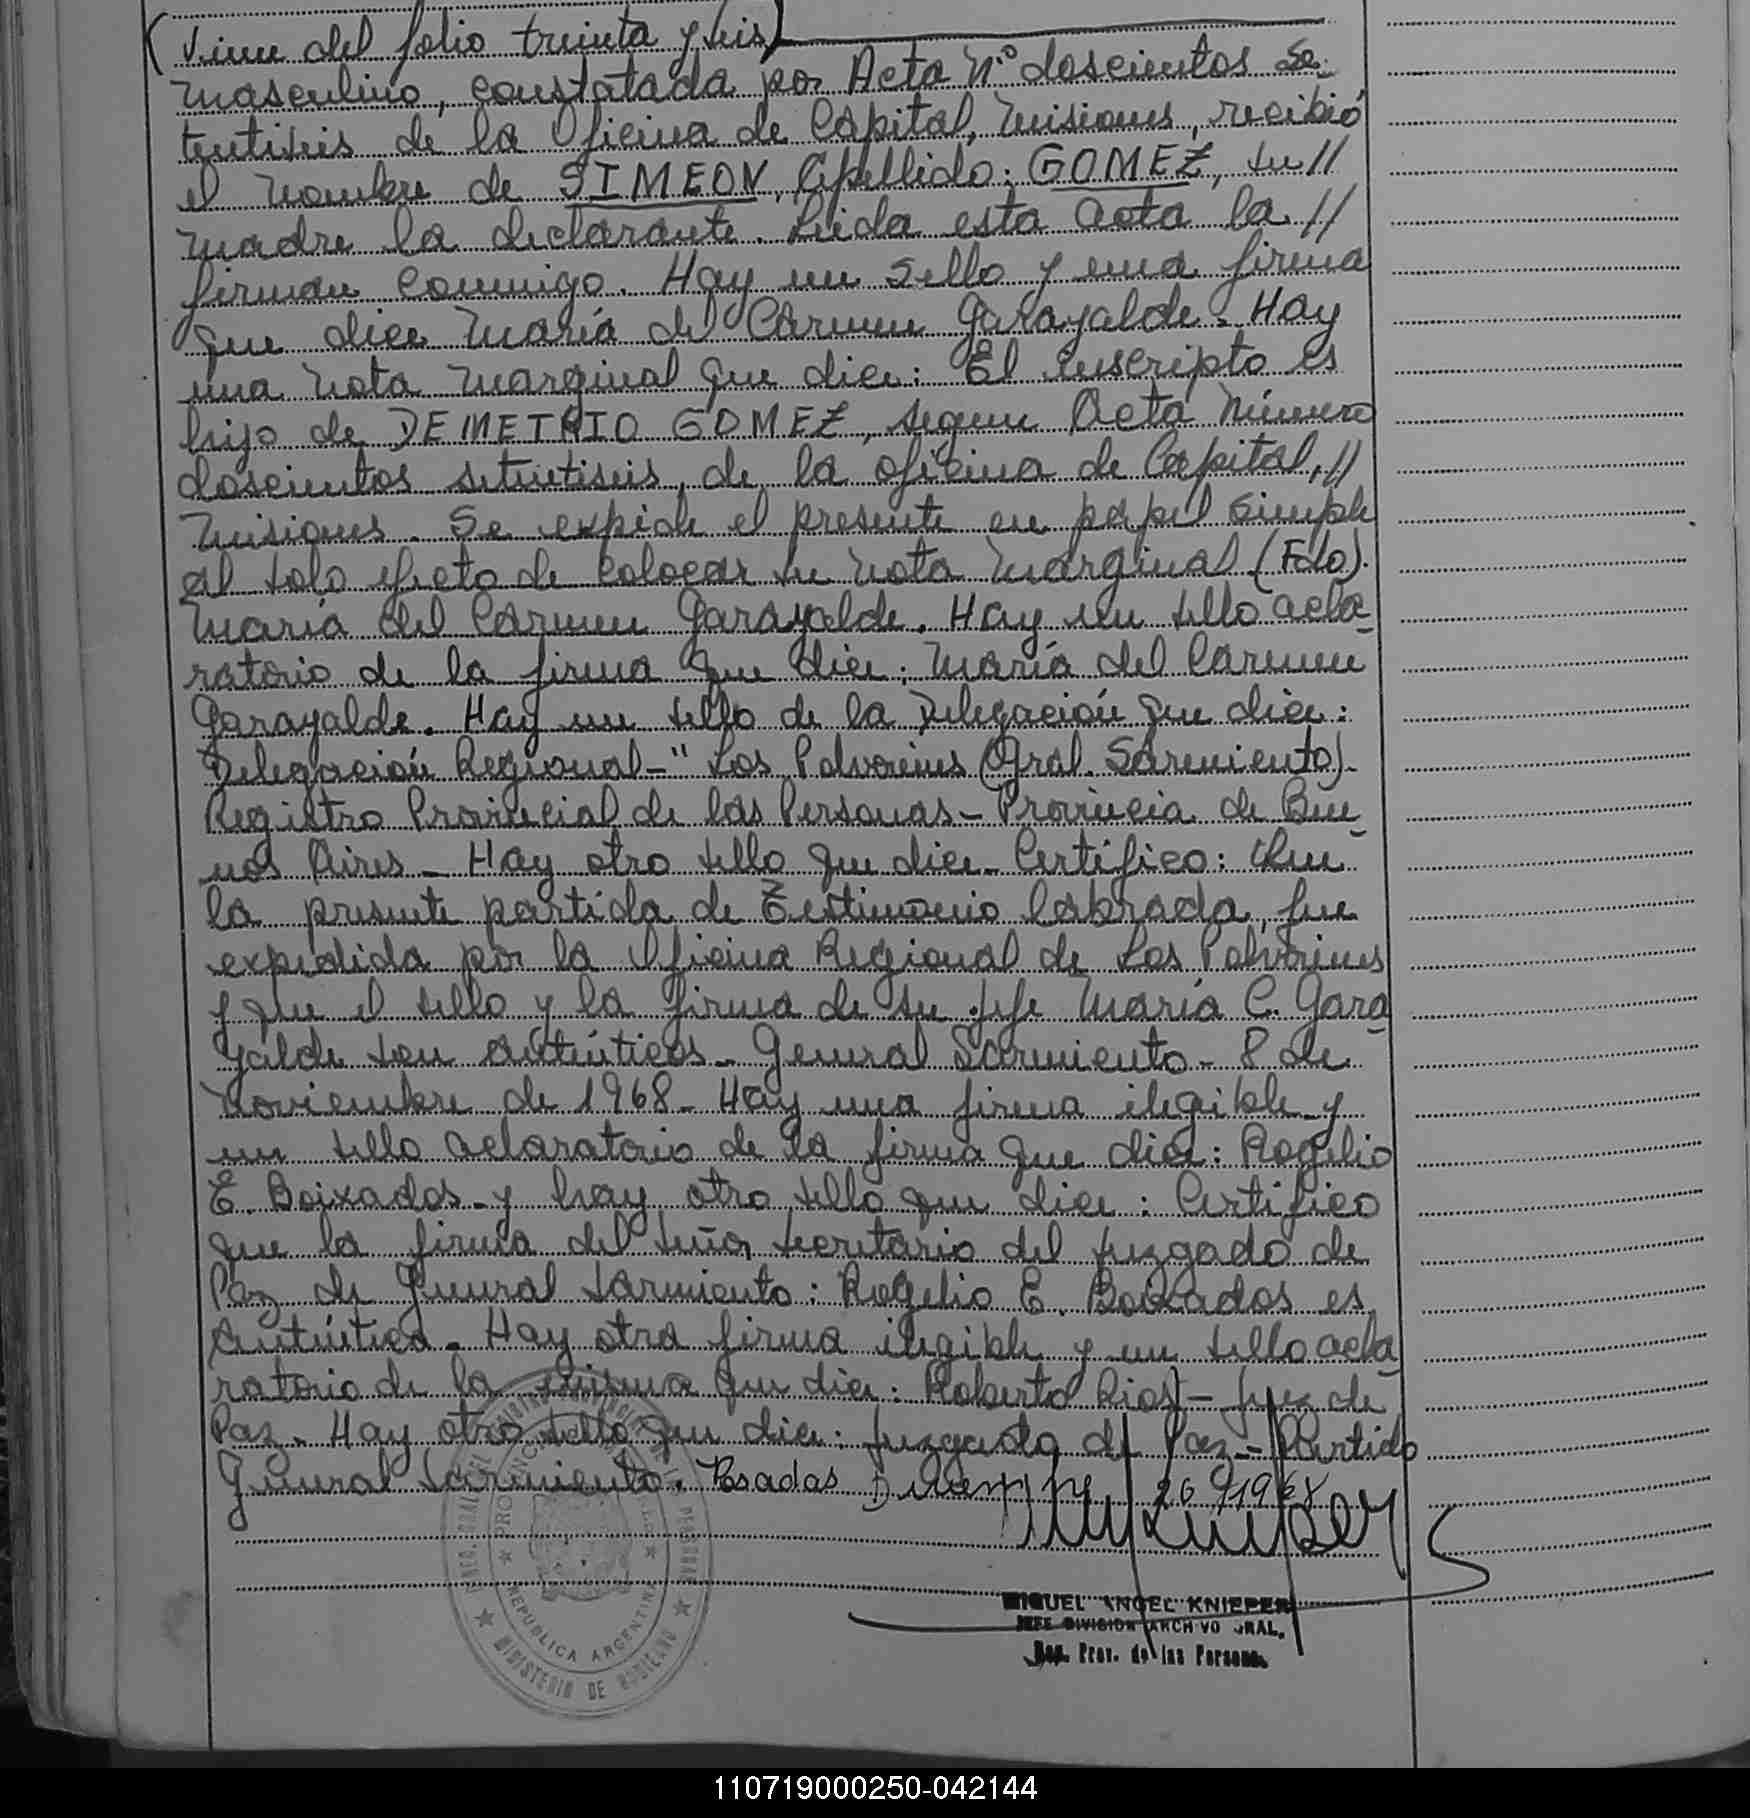 (Viene del folio treinta y seis)
masculino, constatada por Acta N.º doscientos se-
tentiseis de la Oficina de Capital, Misiones, recibió
el nombre de SIMEON, Apellido: GOMEZ, su //
madre la declarante. Leída esta acta la //
firman conmigo. Hay un sello y una firma
que dice María del Carmen Garayalde. Hay
una nota marginal que dice: El inscripto es
hijo de DEMETRIO GOMEZ, según Acta Número
doscientos setentiseis, de la oficina de Capital, //
Misiones. Se expide el presente en papel simple
al solo efecto de colocar su nota marginal (Fdo).
María del Carmen Garayalde. Hay un sello acla-
ratorio de la firma que dice: María del Carmen
Garayalde. Hay un sello de la Delegación que dice:
Delegación Regional-" Los Polvorines (Gral. Sarmiento).
Registro Provincial de las Personas - Provincia de Bue-
nos Aires - Hay otro sello que dice - Certifico: Que
la presente partida de Testimonio labrada, fue
expedida por la Oficina Regional de Los Polvorines
y que el sello y la firma de su jefe María C. Gara-
yalde son auténticos - General Sarmiento - 8 de
Noviembre de 1968 - Hay una firma ilegible y
un sello aclaratorio de la firma que dice: Rogelio
E. Boixados - y hay otro sello que dice: Certifico
que la firma del señor secretario del Juzgado de
Paz de General Sarmiento: Rogelio E. Boixados es
auténtica. Hay otra firma ilegible y un sello acla-
ratorio de la misma que dice: Roberto Rios - Juez de
Paz. Hay otro sello que dice: Juzgado de Paz - Partido
General Sarmiento. Posadas Diciembre 26/1968
MIGUEL ANGEL KNIEPER
JEFE DIVISION ARCHIVO GRAL.
Reg. Prov. de las Personas
REPUBLICA ARGENTINA
MINISTERIO DE GOBIERNO
110719000250-042144